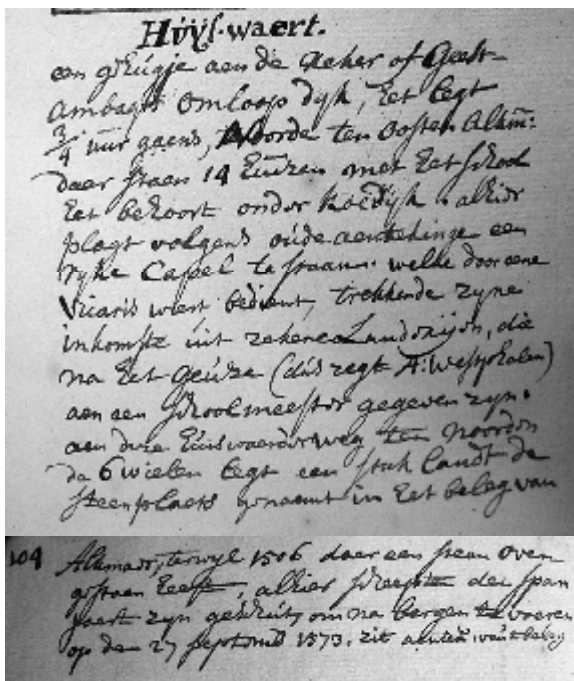 Huijs-waert.
een g'hugje aen de Acker of Geest-
ambagts omloop dyk, het legt
3/4 uur gaens, Noorde ten oosten Alkm:
daer staen 14 huizen met het school
het behoort onder Koedijk. alhier
plagt volgens oude aentekeninge een
ryke Capel te staan. welke door eene
Vicaris wiert bedient, trekkende zyne
inkomste uit zekere Landerijen, die
na het geuze (dus zegt A: Westphalen)
aen een schoolmeester gegeven zyn.
aen deze huiswaerder weg ten noorden
de 6 wielen legt een stuk landt de
steenplaets genaemt in het beleg van
104 Alkmaer, terwyl 1506 daer een steen oven
gestaan heeft, alhier scheepte der span
jaert zyn geschut, om na bergen te voeren
op den 27 septemb 1573. zit aenten. van't beleg